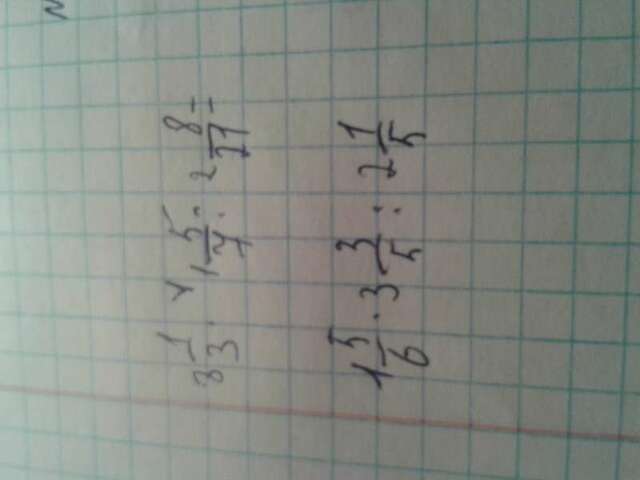 3 1/3 · 1 5/7 : 2 8/21 =
1 5/6 · 3 3/5 : 2 1/5